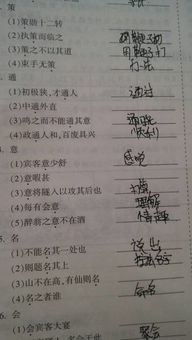 策
(1)策勋十二转
(2)执策而临之 用鞭子打
(3)策之不以其道 用鞭子打
(4)束手无策
通
(1)初极狭，才通人 通过
(2)中通外直
(3)鸣之而不能通其意
(4)政通人和，百废具兴
意
(1)宾客意少舒 感觉
(2)意暇甚
(3)意将隧入以攻其后也 打算
(4)每有会意
(5)醉翁之意不在酒 情趣
5. 名
(1)不能名其一处也 说出
(2)则题名其上
(3)山不在高，有仙则名
(4)名之者谁 命名
6. 会
(1)会宾客大宴 聚会